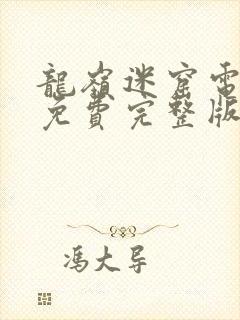 龍嶺迷窟電
免費完整版
馮大导